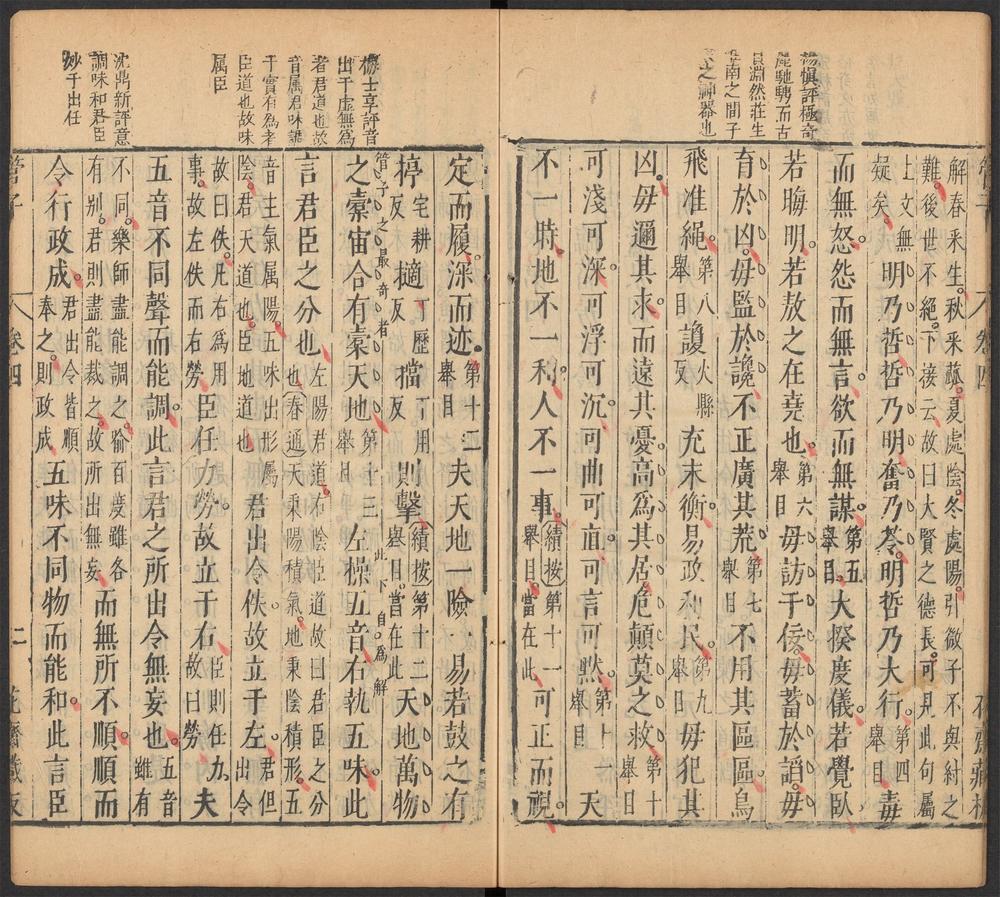 楊慎評極奇
麗馳騁而古
質淵然莊生
淮南之間子
家之神器也
解春采生秋采蓏夏處陰冬處陽引微子不與紂之
難後世不絕下接云故曰大賢之德長可見此句屬
上文無疑矣明乃哲哲乃明奮乃苓明哲乃大行第四舉目毒
而無怒怨而無言欲而無謀第五舉目大揆度儀若覺臥
若晦明若敖之在堯也第六舉目毋訪于佞毋蓄於諂毋
育於凶毋監於讒不正廣其荒第七舉目不用其區區鳥
飛准繩第八舉目謏火縣反充末衡易政利民第九舉目毋犯其
凶毋邇其求而遠其憂高爲其居危顛莫之救第十舉目
可淺可深可浮可沉可曲可直可言可默第十一舉目天
不一時地不一利人不一事績按第十一舉目當在此可正而視
梅士享評音
出于虛無爲
者君道也故
音屬君味講
于實有爲者
臣道也故味
屬臣
沈鼎新評意
調味和君臣
妙于出任
定而履深而迹第十二舉目夫天地一險一易若鼓之有
桴宅耕反擿丁歷反擋丁用反則擊績按第十二舉目當在此天地萬物
管子之最奇者
之橐宙合有橐天地第十三舉目此下自爲解左操五音右執五味此
言君臣之分也左陽君道右陰臣道故曰君臣之分也春通天秉陽積氣地秉陰積形五
音生氣屬陽五味出形屬陰君天道也臣地道也君出令佚故立于左君但出令
故曰佚凡右爲用事故左佚而右勞臣任力勞故立于右臣則任力故曰勞夫
五音不同聲而能調此言君之所出令無妄也五音雖有
不同樂師盡能調之喻百度雖各有別君則盡能裁之故所出無妄而無所不順順而
令行政成君出令皆順奉之則政成五味不同物而能和此言臣
管子
卷四
二
花齋藏板